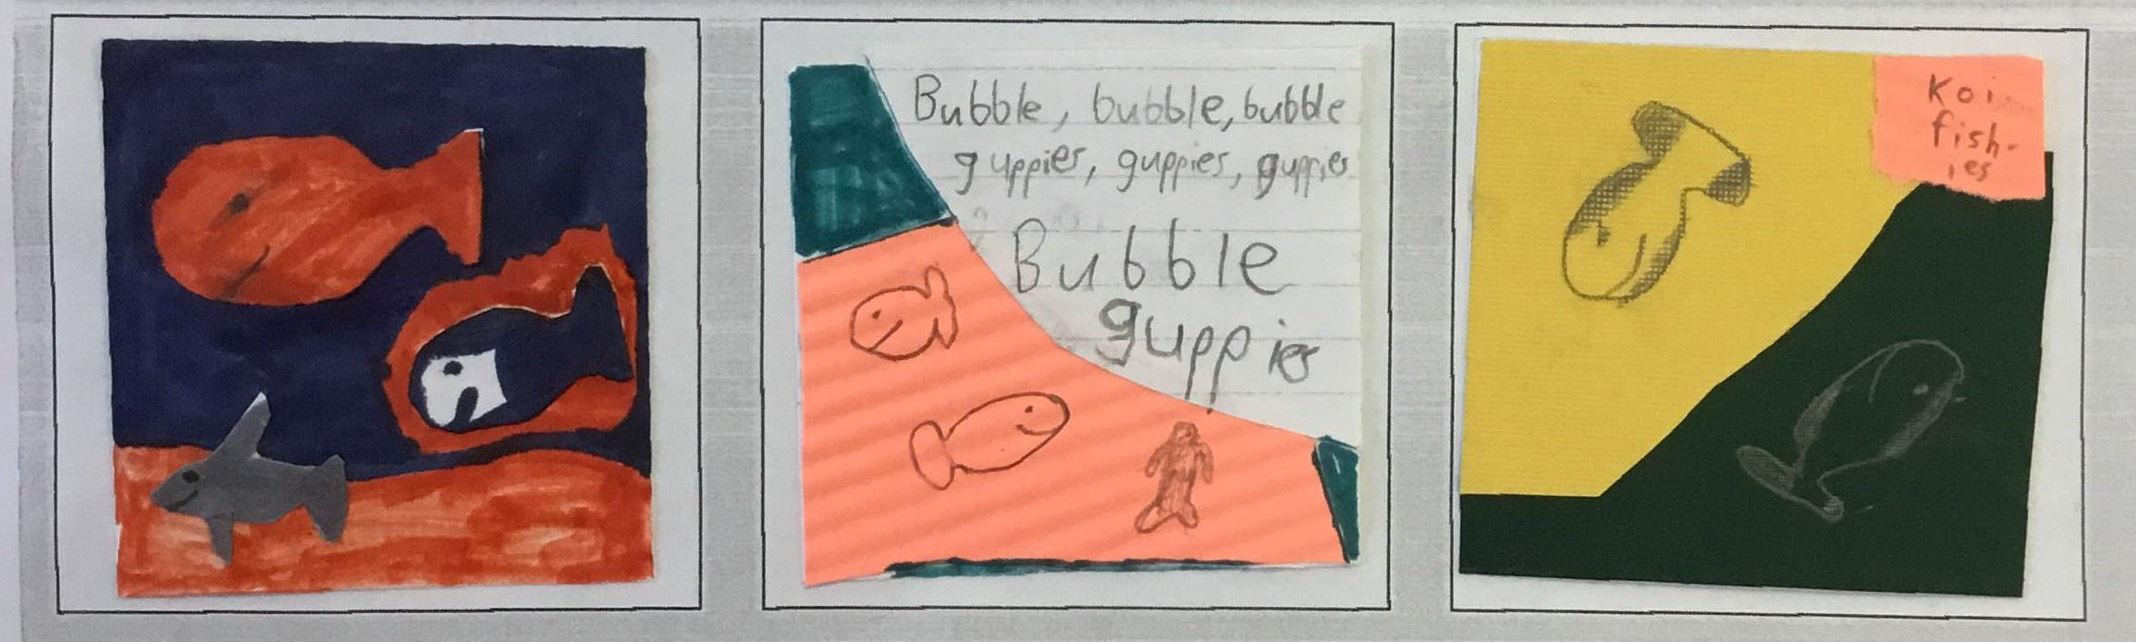 Bubble, bubble, bubble
guppies, guppies, guppies
Bubble
guppies
Koi
fish-
ies